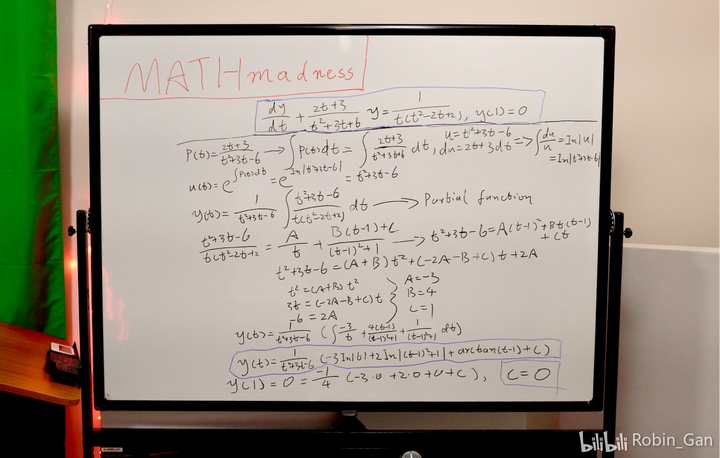 MATHmadness
dy/dt + (2t+3)/(t²+3t+6) y = 1/(t(t²-2t+2)), y(1)=0
P(t)=(2t+3)/(t²+3t-6) → ∫P(t)dt = ∫(2t+3)/(t²+3t+6) dt, u=t²+3t-6, du=2t+3dt => ∫du/u = ln|u| = ln|t²+3t-6|
u(t)=e^∫P(t)dt = e^ln|t²+3t-6| = t²+3t-6
y(t)=1/(t²+3t-6) ∫(t²+3t-6)/(t(t²-2t+2)) dt → Partial function
(t²+3t-6)/(t(t²-2t+2) = A/t + (B(t-1)+C)/((t-1)²+1) → t²+3t-6=A(t-1)²+Bt(t-1)+Ct
t²+3t-6=(A+B)t²+(-2A-B+C)t+2A
t²=(A+B)t² A=-3
3t=(-2A-B+C)t B=4
-6=2A C=1
y(t)=1/(t²+3t-6) (∫-3/t + 4(t-1)/((t-1)²+1) + 1/((t-1)²+1) dt)
y(t)=1/(t²+3t-6) (-3ln|t|+2ln|(t-1)²+1|+arctan(t-1)+C)
y(1)=0=-1/4 (-3·0+2·0+0+C), C=0
bilibili Robin_Gan